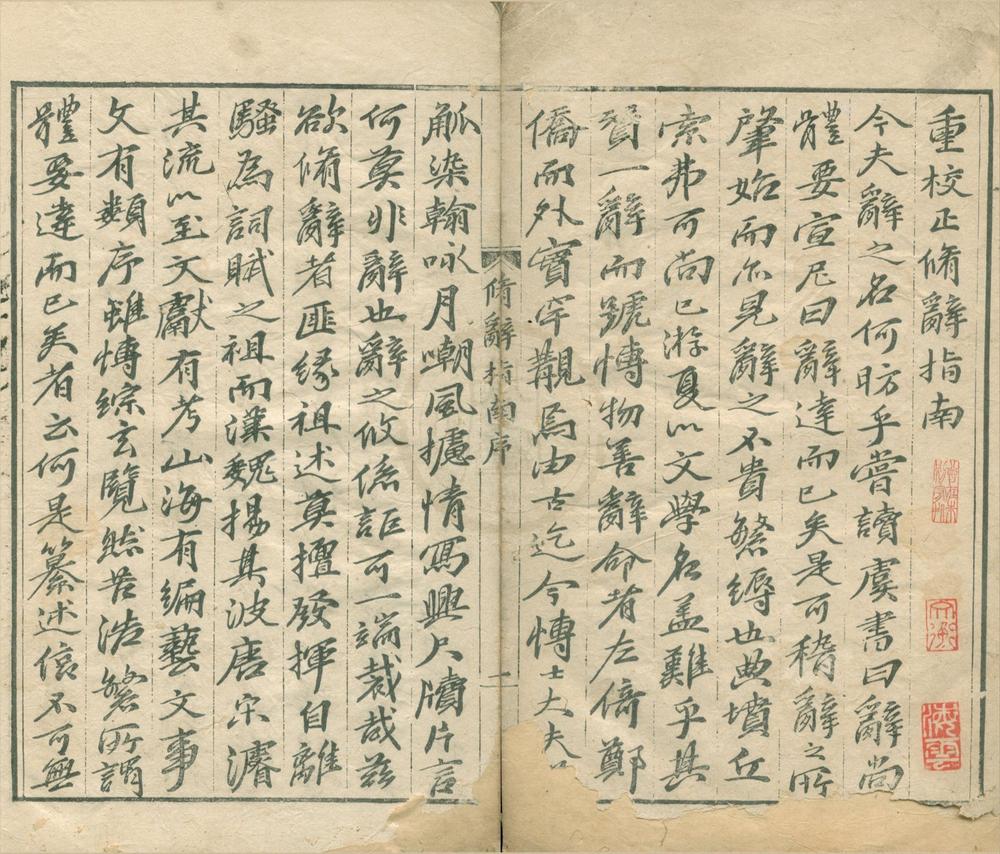 重校正脩辭指南
今夫辭之名何昉乎嘗讀虞書曰辭尚
體要宣尼曰辭達而已矣是可稽辭之所
肇始而亦見辭之不貴繁縟也典墳丘
索弗可尚已游夏以文學名蓋難乎其
贊一辭而號慱物善辭命者左倚鄭
僑而外寔罕覯焉由古迄今慱士大夫
脩辭指南序
一
觚染翰咏月嘲風攄情寫興尺牘片言
何莫非辭也辭之攸係詎可一端裁哉茲
欲脩辭者匪緣祖述莫擅發揮自離
騷為詞賦之祖而漢魏揚其波唐宋濬
其流以至文獻有考山海有編藝文事
文有類序雖慱綜玄覽然苦浩繁所謂
體要達而已矣者云何是纂述信不可無